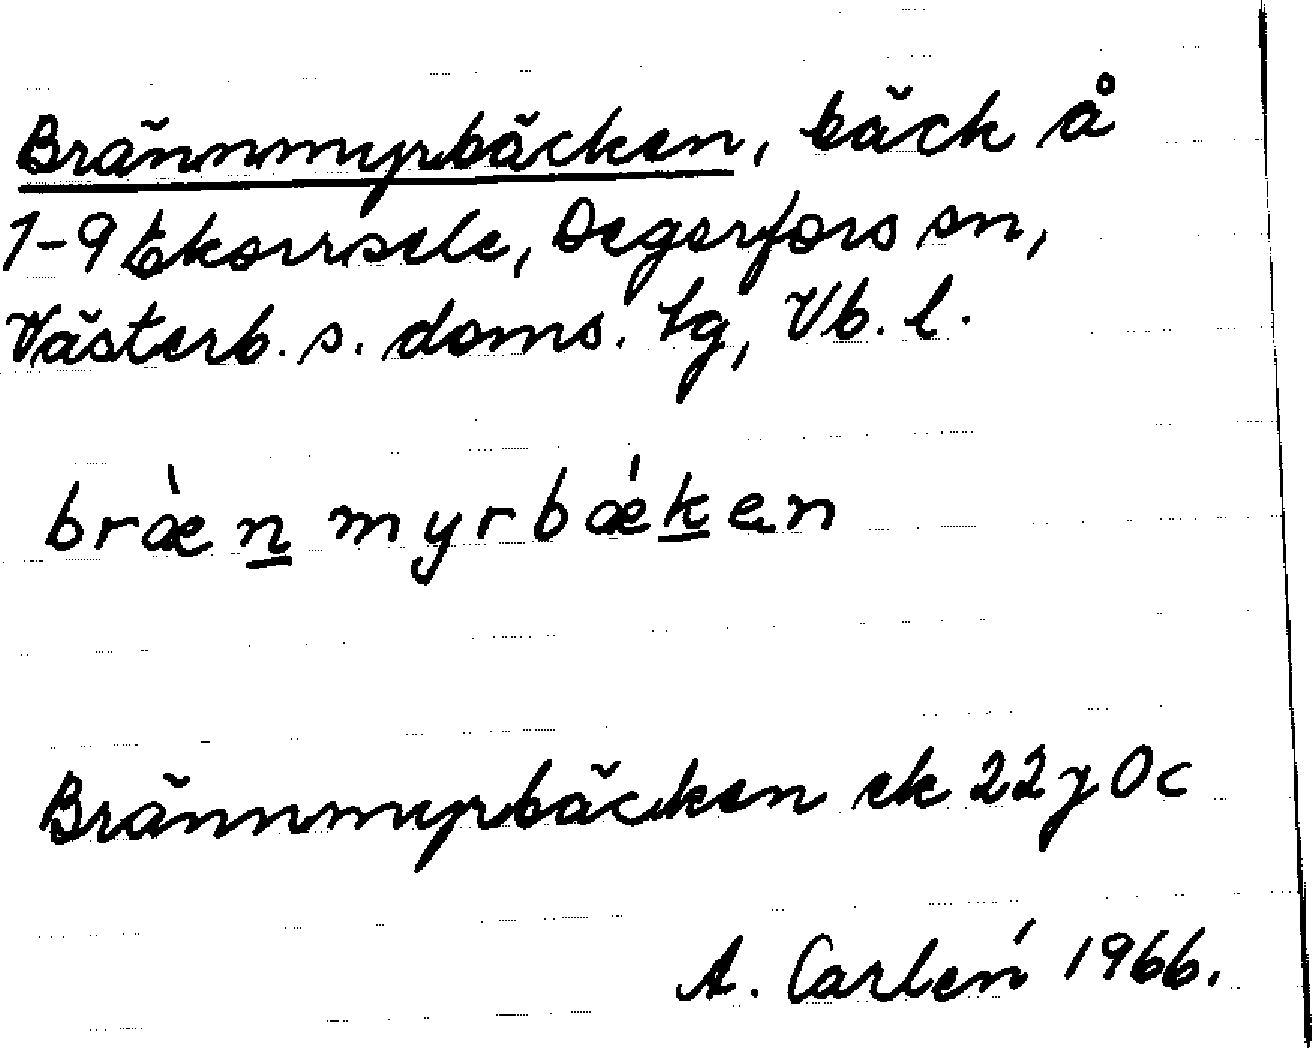 Brännmyrbäcken, bäck å
1-9 Ekorrsele, Degerfors sn,
Västerb. s. doms. tg, Vb. l.
bræ̀n̲ myrbǽk̲en
Brännmyrbäcken ek 22 j 0c
A. Carlén 1966.